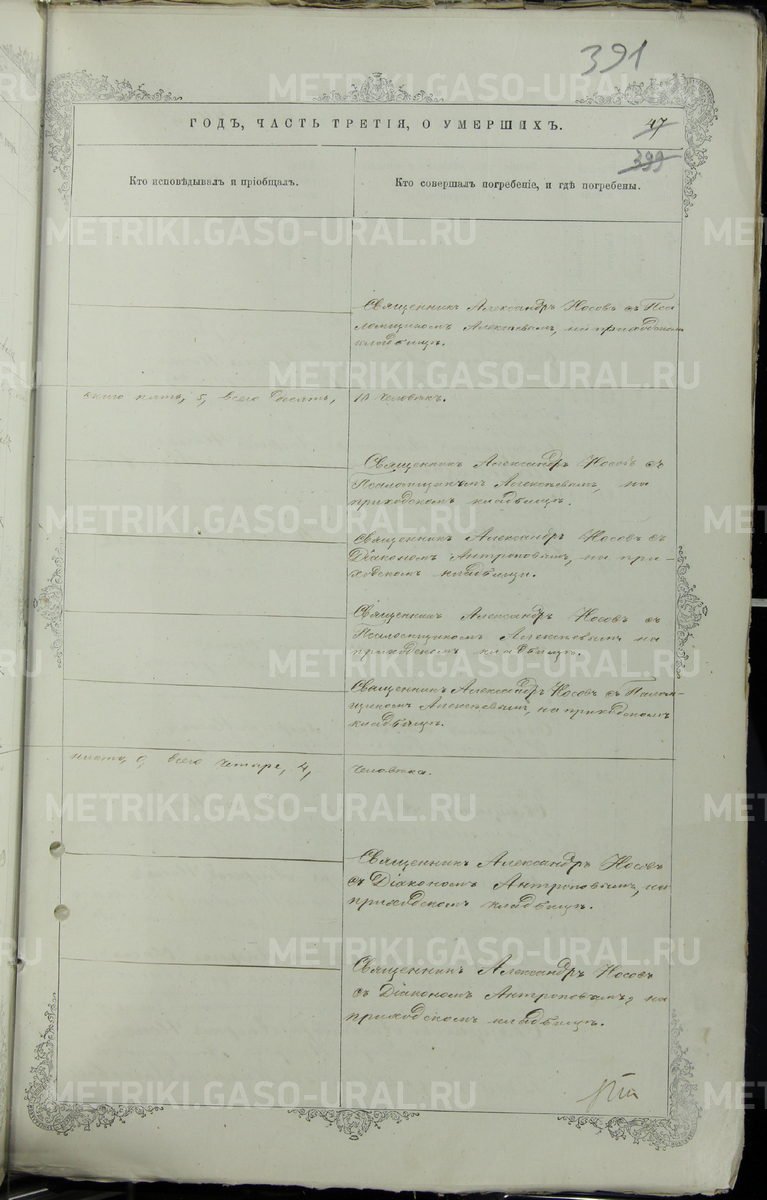 391
ГОДЪ, ЧАСТЬ ТРЕТІЯ, О УМЕРШИХЪ.
47
399
Кто исповѣдывалъ и пріобщалъ.
Кто совершалъ погребеніе, и гдѣ погребены.
Священникъ Александръ Носовъ съ Пса
ломщикомъ Алексѣевымъ, на приходском
кладбищѣ.
пять, 5, всего десять,
10 человѣкъ.
Священникъ Александръ Носовъ съ
Псаломщикомъ Алексѣевымъ, на
приходскомъ кладбищѣ.
Священникъ Александръ Носовъ съ
Діакономъ Антроповымъ, на при-
ходскомъ кладбищѣ.
Священникъ Александръ Носовъ съ
Псаломщикомъ Алексѣевымъ на
приходскомъ кладбищѣ.
Священникъ Александръ Носовъ съ Псалом-
щикомъ Алексѣевымъ, на приходскомъ
кладбищѣ.
всего четыре, 4,
человѣка.
Священникъ Александръ Носовъ
съ Діакономъ Антроповымъ, на
приходскомъ кладбищѣ.
Священникъ Александръ Носовъ
съ Діакономъ Антроповымъ, на
приходскомъ кладбищѣ.
METRIKI.GASO-URAL.RU